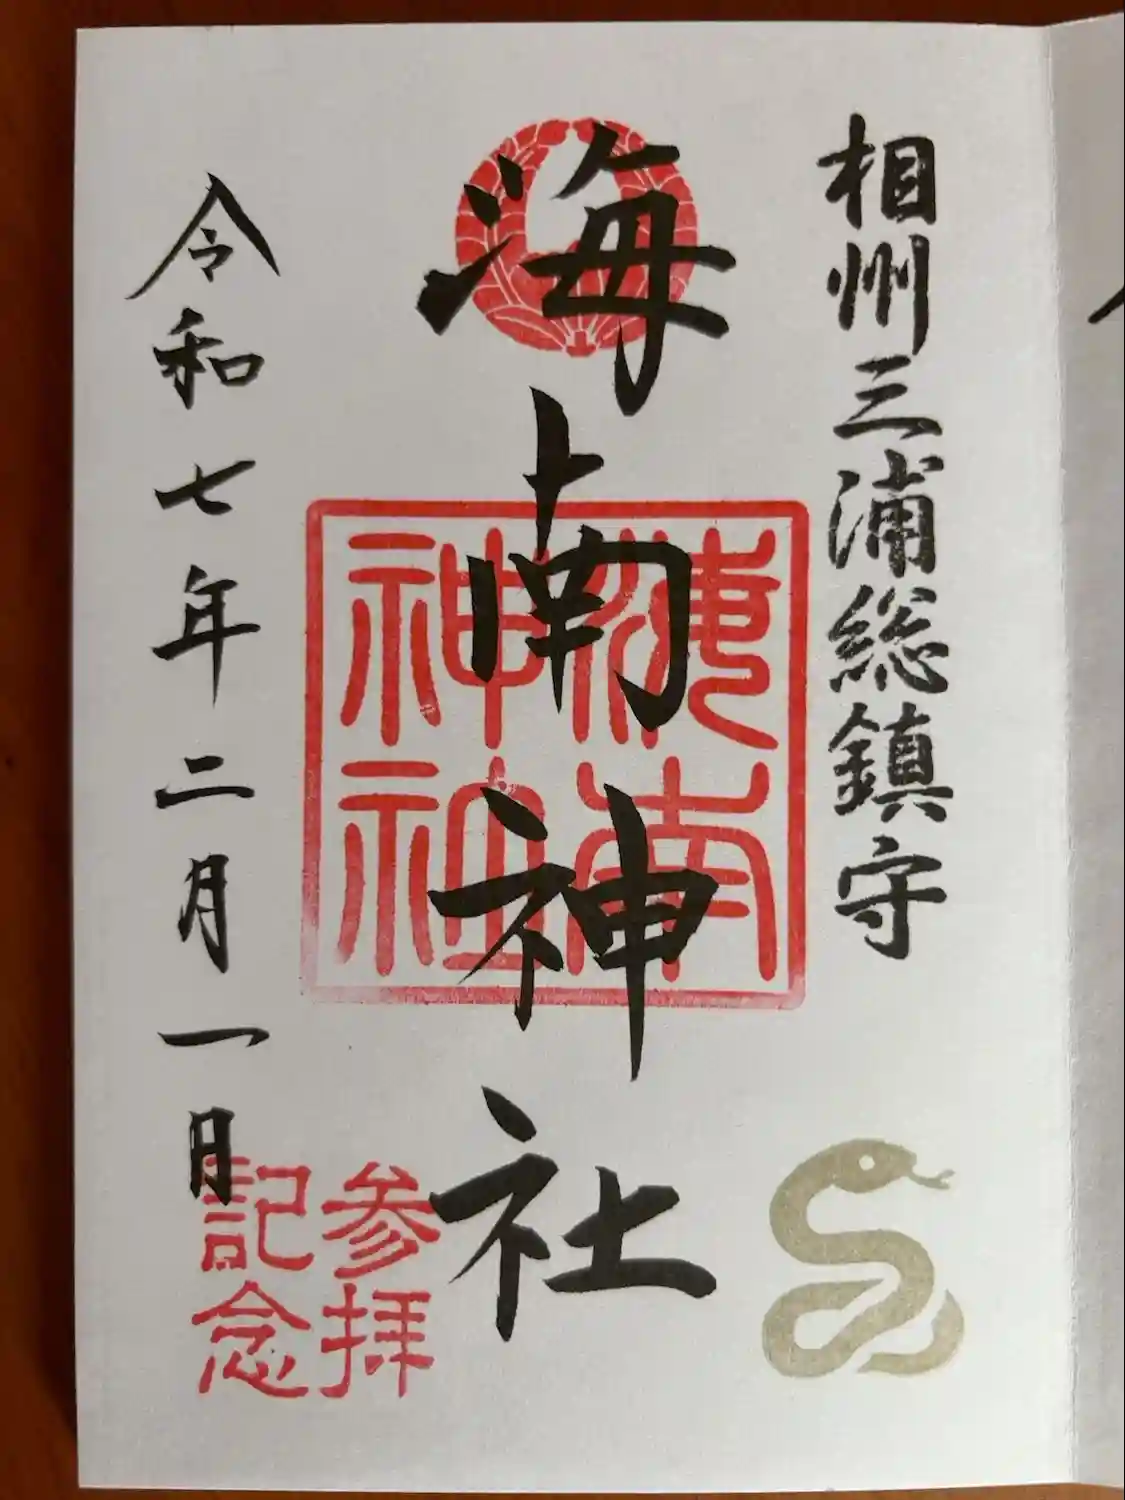 相州三浦総鎮守
海南神社
海南
神社
参拝
記念
令和七年二月一日